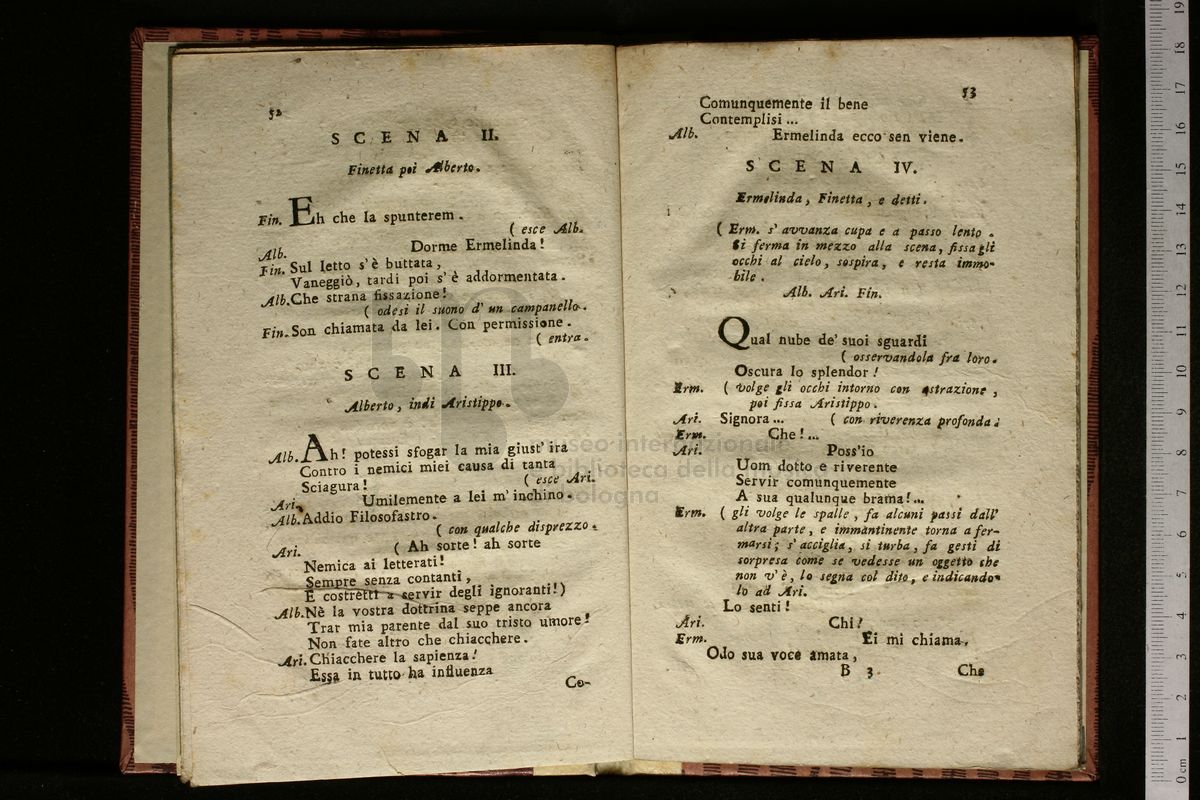 52
SCENA II.
Finetta poi Alberto.
Fin. Eh che la spunterem.
( esce Alb.
Alb. Dorme Ermelinda!
Fin. Sul letto s'è buttata,
Vaneggiò, tardi poi s'è addormentata.
Alb. Che strana fissazione!
( odesi il suono d'un campanello.
Fin. Son chiamata da lei. Con permissione.
( entra.
SCENA III.
Alberto, indi Aristippo.
Alb. Ah! potessi sfogar la mia giust'ira
Contro i nemici miei causa di tanta
Sciagura!
( esce Ari.
Ari. Umilemente a lei m'inchino.
Alb. Addio Filosofastro.
( con qualche disprezzo.
Ari. ( Ah sorte! ah sorte
Nemica ai letterati!
Sempre senza contanti,
E costretti a servir degli ignoranti!)
Alb. Nè la vostra dottrina seppe ancora
Trar mia parente dal suo tristo umore!
Non fate altro che chiacchere.
Ari. Chiacchere la sapienza!
Essa in tutto ha influenza
Co-
53
Comunquemente il bene
Contemplisi...
Alb. Ermelinda ecco sen viene.
SCENA IV.
Ermelinda, Finetta, e detti.
( Erm. s'avvanza cupa e a passo lento.
Si ferma in mezzo alla scena, fissa gli
occhi al cielo, sospira, e resta immo-
bile.
Alb. Ari. Fin.
Qual nube de' suoi sguardi
( osservandola fra loro.
Oscura lo splendor!
Erm. ( volge gli occhi intorno con astrazione,
poi fissa Aristippo.
Ari. Signora... ( con riverenza profonda.
Erm. Che!...
Ari. Poss'io
Uom dotto e riverente
Servir comunquemente
A sua qualunque brama!...
Erm. ( gli volge le spalle, fa alcuni passi dall'
altra parte, e immantinente torna a fer-
marsi; s'acciglia, si turba, fa gesti di
sorpresa come se vedesse un oggetto che
non v'è, lo segna col dito, e indicando-
lo ad Ari.
Lo senti!
Ari. Chi?
Erm. Ei mi chiama,
Odo sua voce amata,
B 3 Che
museo internazionale
biblioteca della musica
bologna
0 cm 1 2 3 4 5 6 7 8 9 10 11 12 13 14 15 16 17 18 19